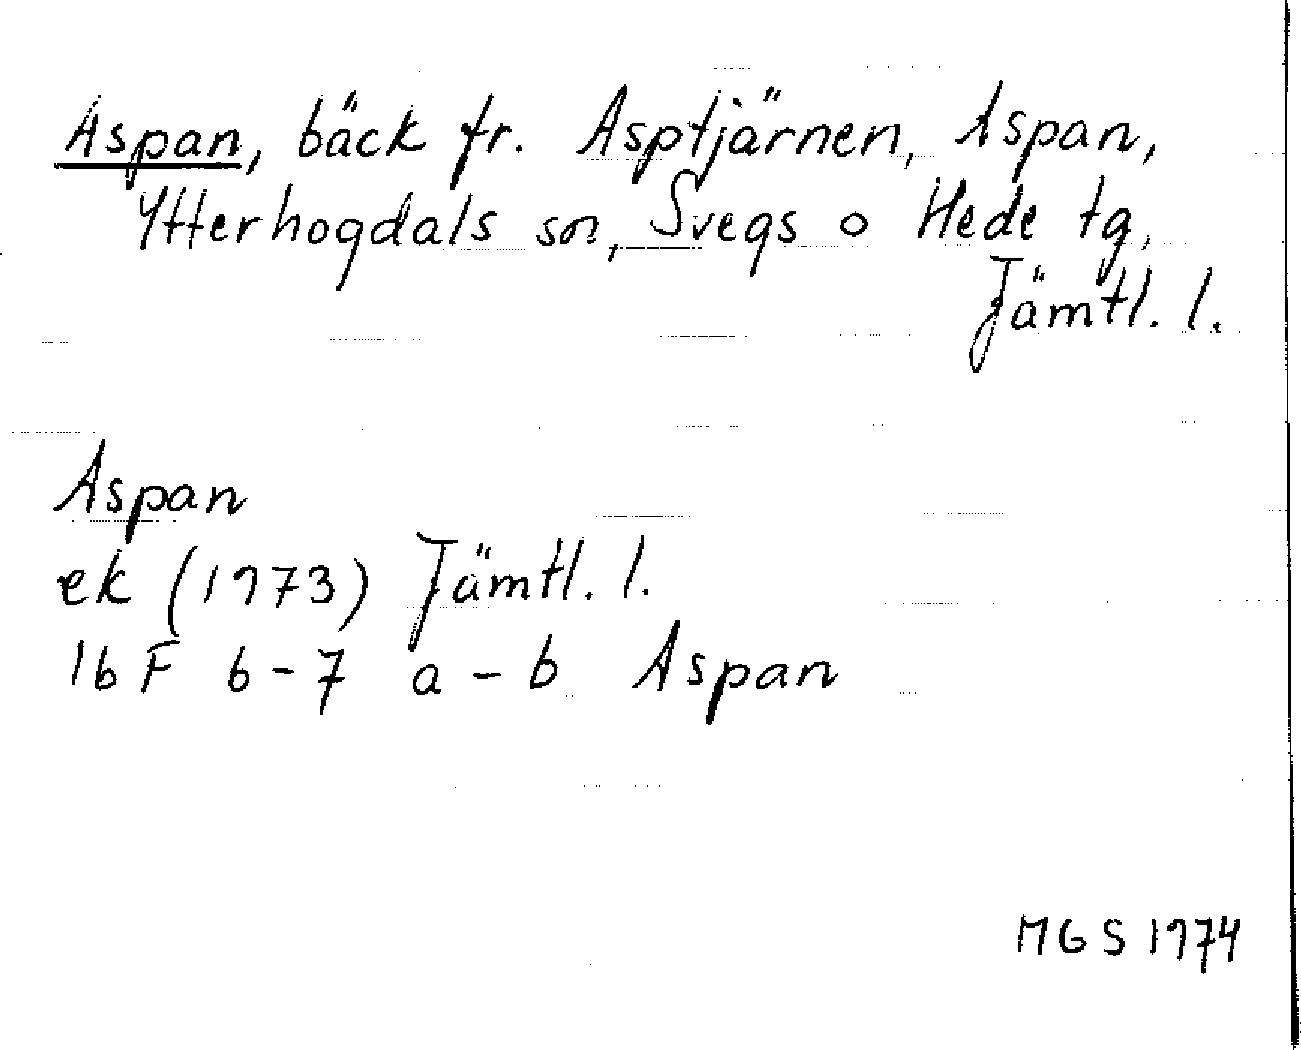 Aspan, bäck fr. Asptjärnen, Aspan,
Ytterhogdals sn, Svegs o Hede tg,
Jämtl. l.
Aspan
ek (1973) Jämtl. l.
16 F 6-7 a-b Aspan
MGS 1974